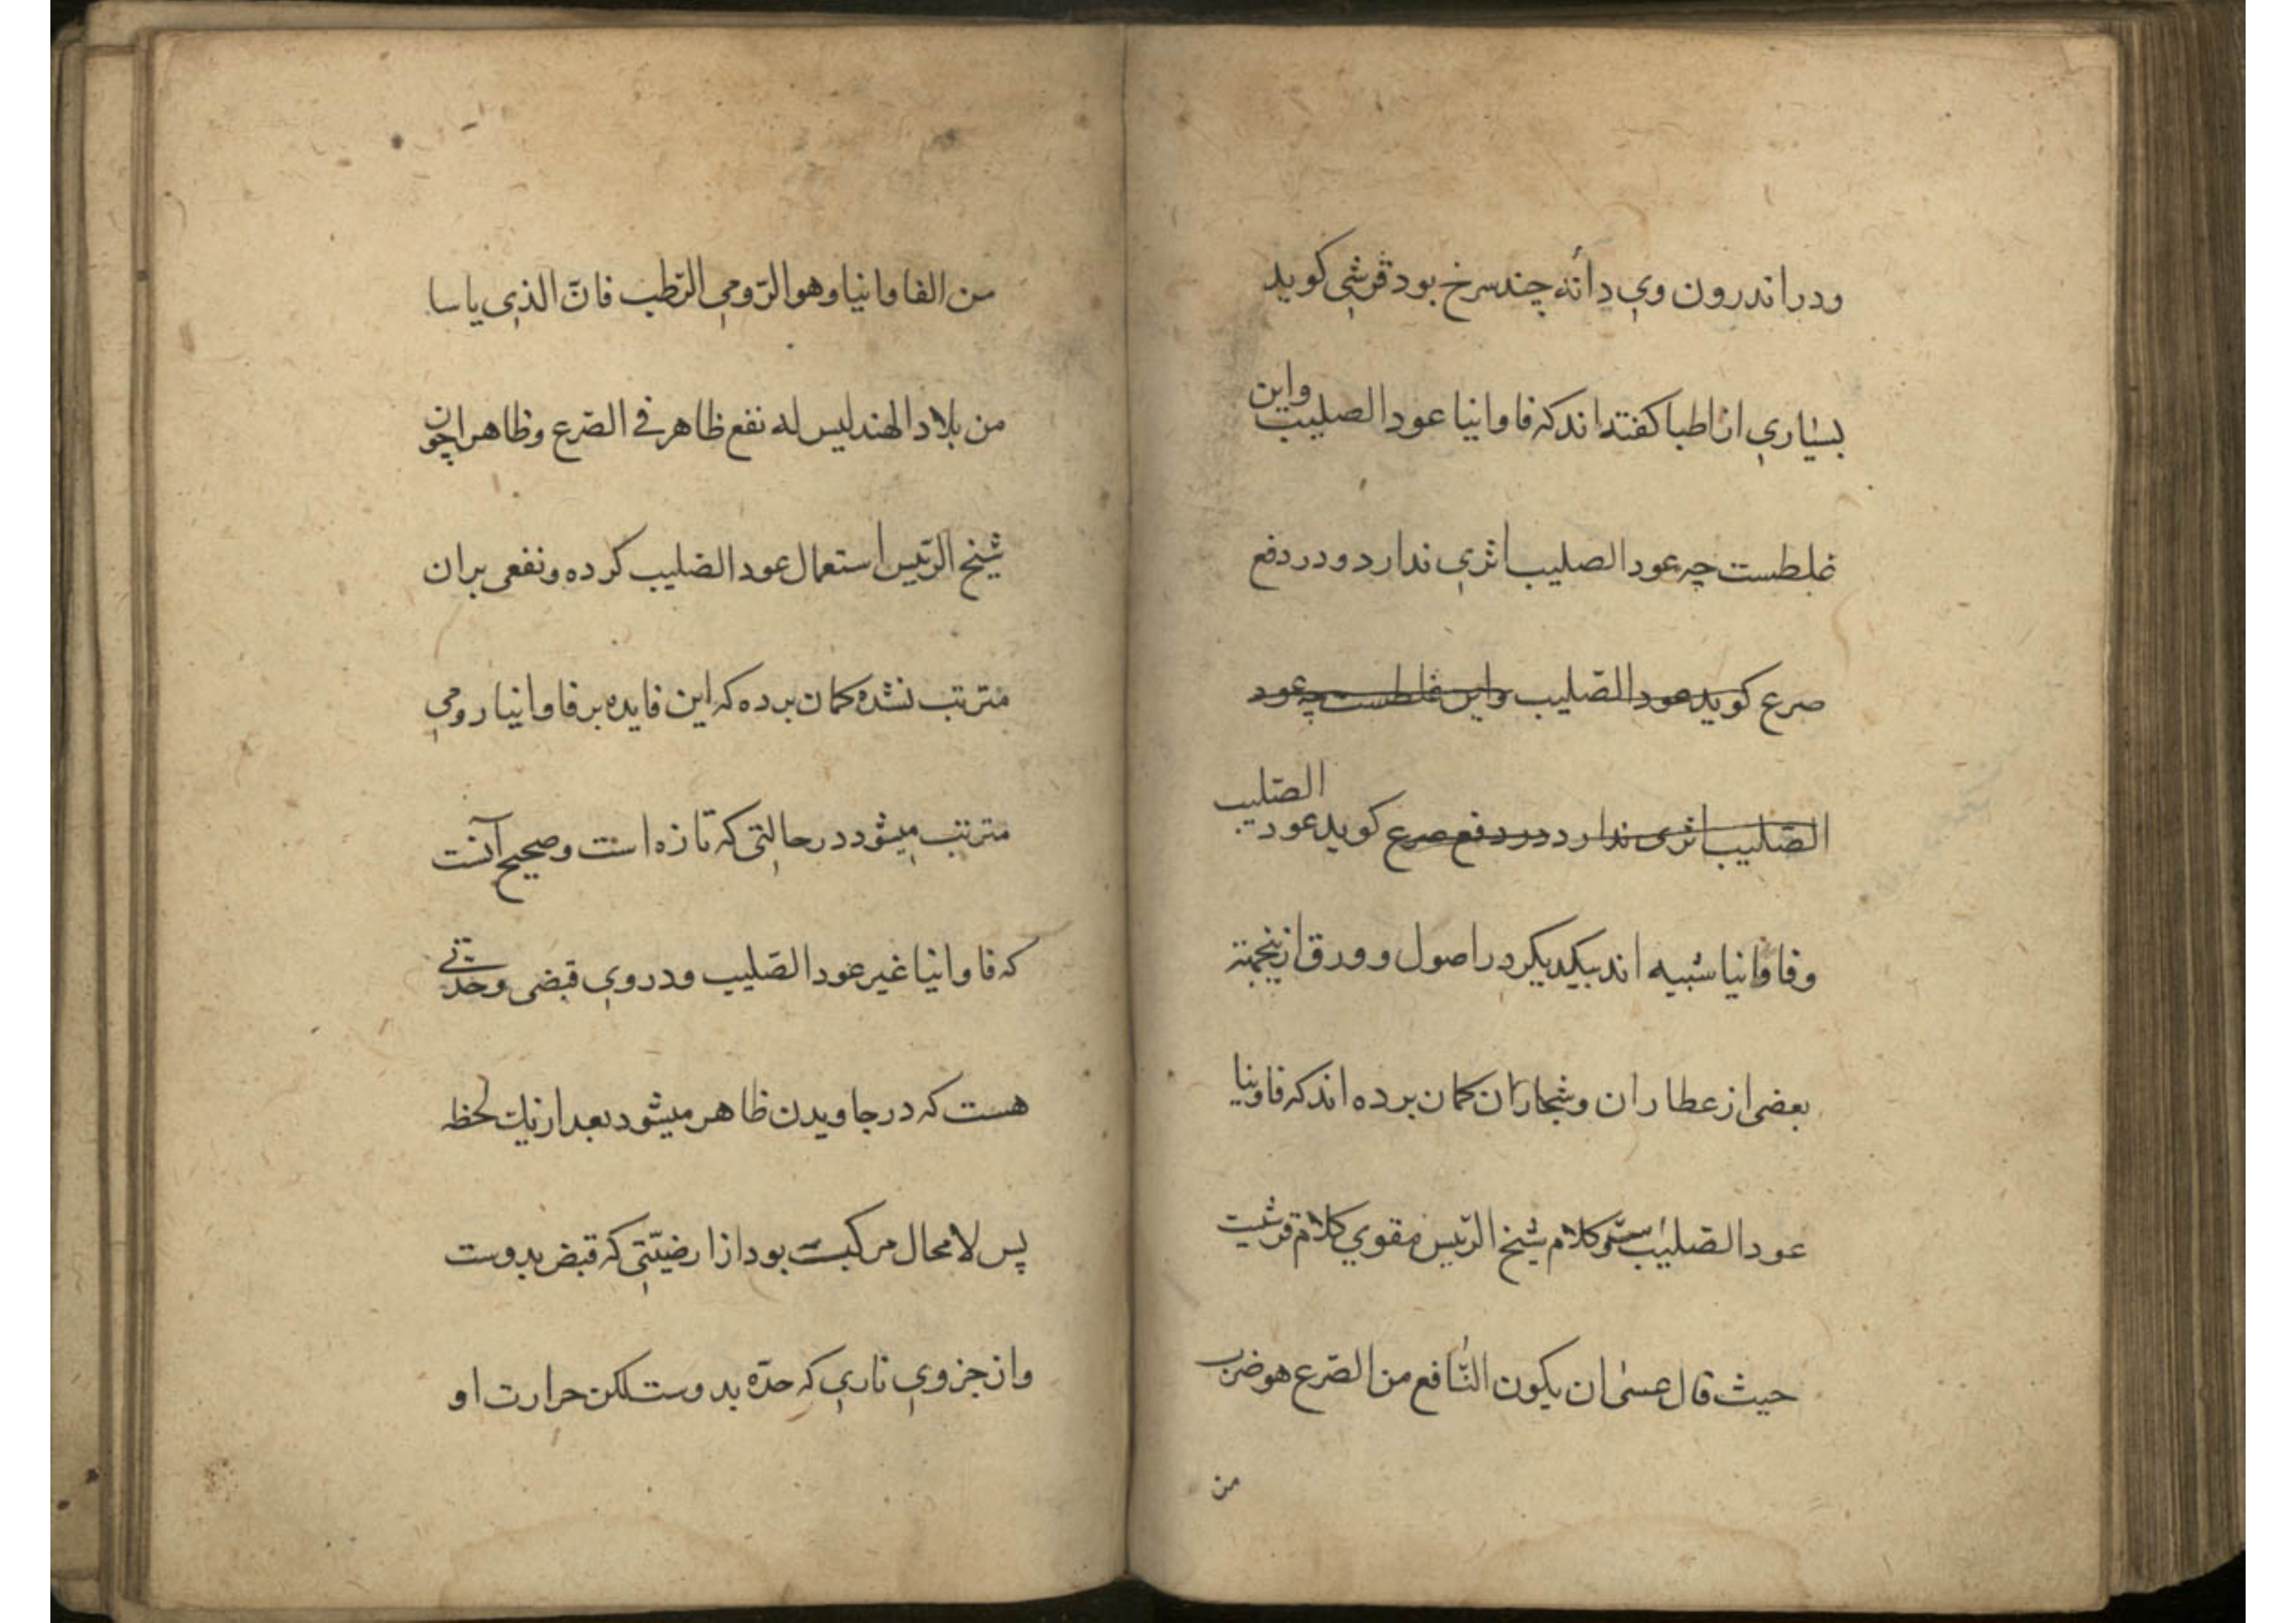 ودر اندرون وي دانه چند سرخ بود قرشي كويد
بسياري از اطبا كفته اند كه فاوانيا عود الصليب واين
غلطست چه عود الصليب اثري ندارد ودر دفع
صرع كويد عود الصّليب واين غلطست چه عود
الصّليب اثرى ندارد در دفع صرع كويد عود الصّليب
وفاوانيا شبيه اند بيكديكر در اصول وورق ازينجهته
بعضى از عطاران وشجاران كمان برده اند كه فاونيا
عود الصّليب ست وكلام شيخ الرّئيس مقوي كلام قرشيت
حيث قال عسى ان يكون النّافع من الصّرع هو ضرب
من
من الفاوانيا وهو الرّومي الرّطب فانّ الذي ياسا
من بلاد الهند ليس له نفع ظاهر في الصّرع وظاهرا چون
شيخ الرّئيس استعمال عود الصّليب كرده ونفعى بران
مترتب نشده كمان برده كه اين فايده بر فاوانيا رومي
مترتب ميشود در حالتي كه تازه است وصحيح آنست
كه فاوانيا غير عود الصّليب ودر وي قبضى وحدّتي
هست كه در جاويدن ظاهر ميشود بعد از يك لحظه
پس لا محال مركبست بود از ارضيّتي كه قبض بدوست
واز جزوي ناري كه حدّه بدوست لكن حرارت او